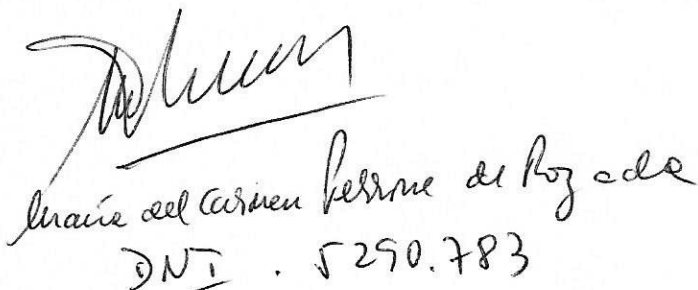 María del Carmen Perrone de Rozada
DNI . 5290.783